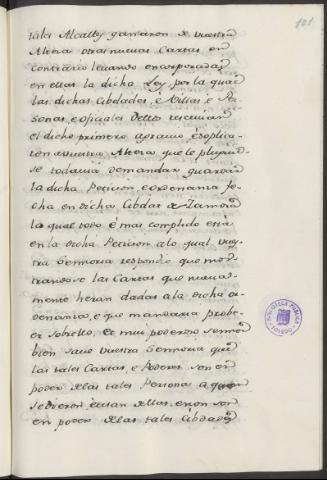 101
tales Alcaldes ganaron de vuestra
Altera otras nuevas Cartas en
contrario levando encorporadas
en ellas la dicha Ley, por la qual
las dichas cibdades, e Villas, e Per-
sonas e oficiales dellos recivian
el dicho primero agravio, e soplica-
ron a vuestra Altera que le pluguie-
se todavia demandar guardar
la dicha Peticion e ordenanza fe-
cha en dicha Cibdat de Zamora
la qual todo é mas complido está
en la dicha Peticion a lo qual vues-
tra Señoria respondio que mos-
trandose las Cartas que nueva-
mente heran dadas a la dicha or-
denanza, e que mandaria prove-
er sobrello, E mui poderoso Señor
bien save vuestra Señoria que
las tales Cartas, e Poderes son en
poder de las tales Personas a quien
se dieron, e usan dellas, e non son
en poder de las tales Cibdades
BIBLIOTECA PUBLICA
TOLEDO